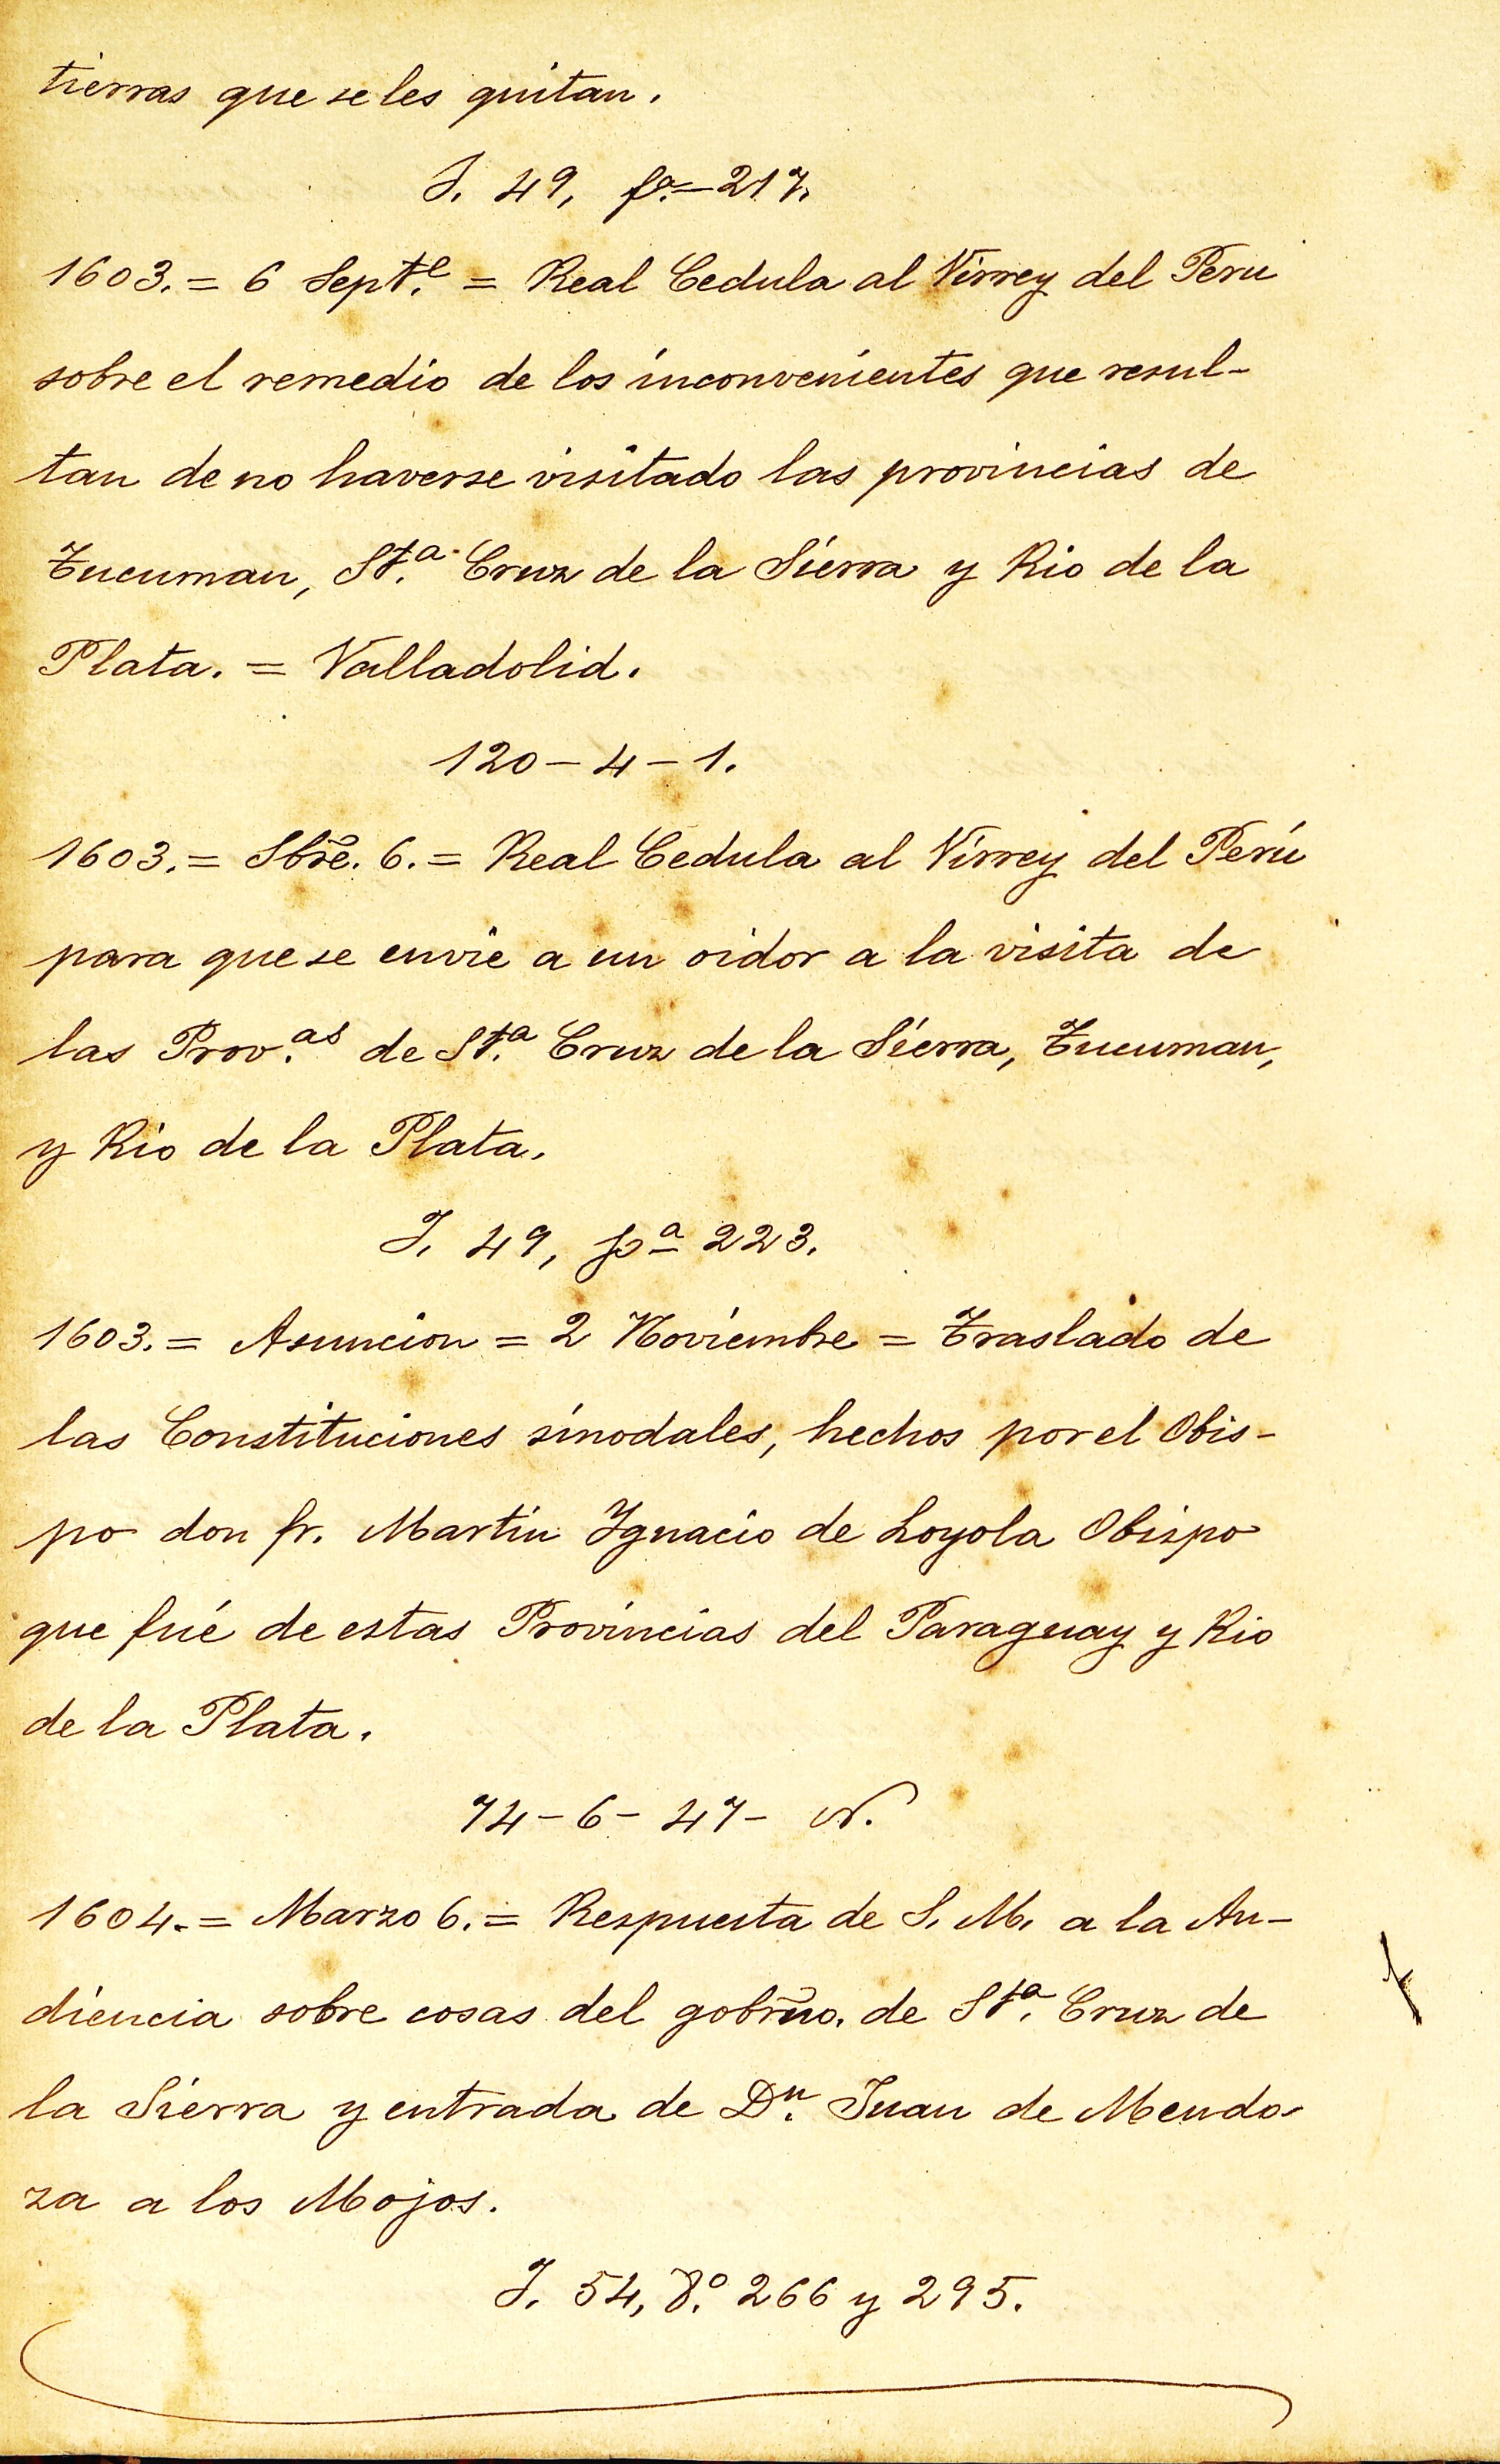 tierras que se les quitan.
J. 49, fº.- 217.
1603. = 6 Sept.e = Real Cedula al Virrey del Peru
sobre el remedio de los inconvenientes que resul-
tan de no haverse visitado las provincias de
Tucuman, St.a Cruz de la Sierra y Rio de la
Plata. = Valladolid.
120 - 4 - 1.
1603. = Sbre. 6. = Real Cedula al Virrey del Perú
para que se envie a un oidor a la visita de
las Prov.as de St.a Cruz de la Sierra, Tucuman,
y Rio de la Plata.
J. 49, pa 223.
1603. = Asuncion = 2 Noviembre = Traslado de
las Constituciones sinodales, hechos por el Obis-
po don fr. Martin Ignacio de Loyola Obispo
que fué de estas Provincias del Paraguay y Rio
de la Plata.
74 - 6 - 47 - N.
1604. = Marzo 6. = Respuesta de S. M. a la Au-
diencia sobre cosas del gobrno. de St.a Cruz de
la Sierra y entrada de D.n Juan de Mendo-
za a los Mojos.
J. 54, 266 y 295.